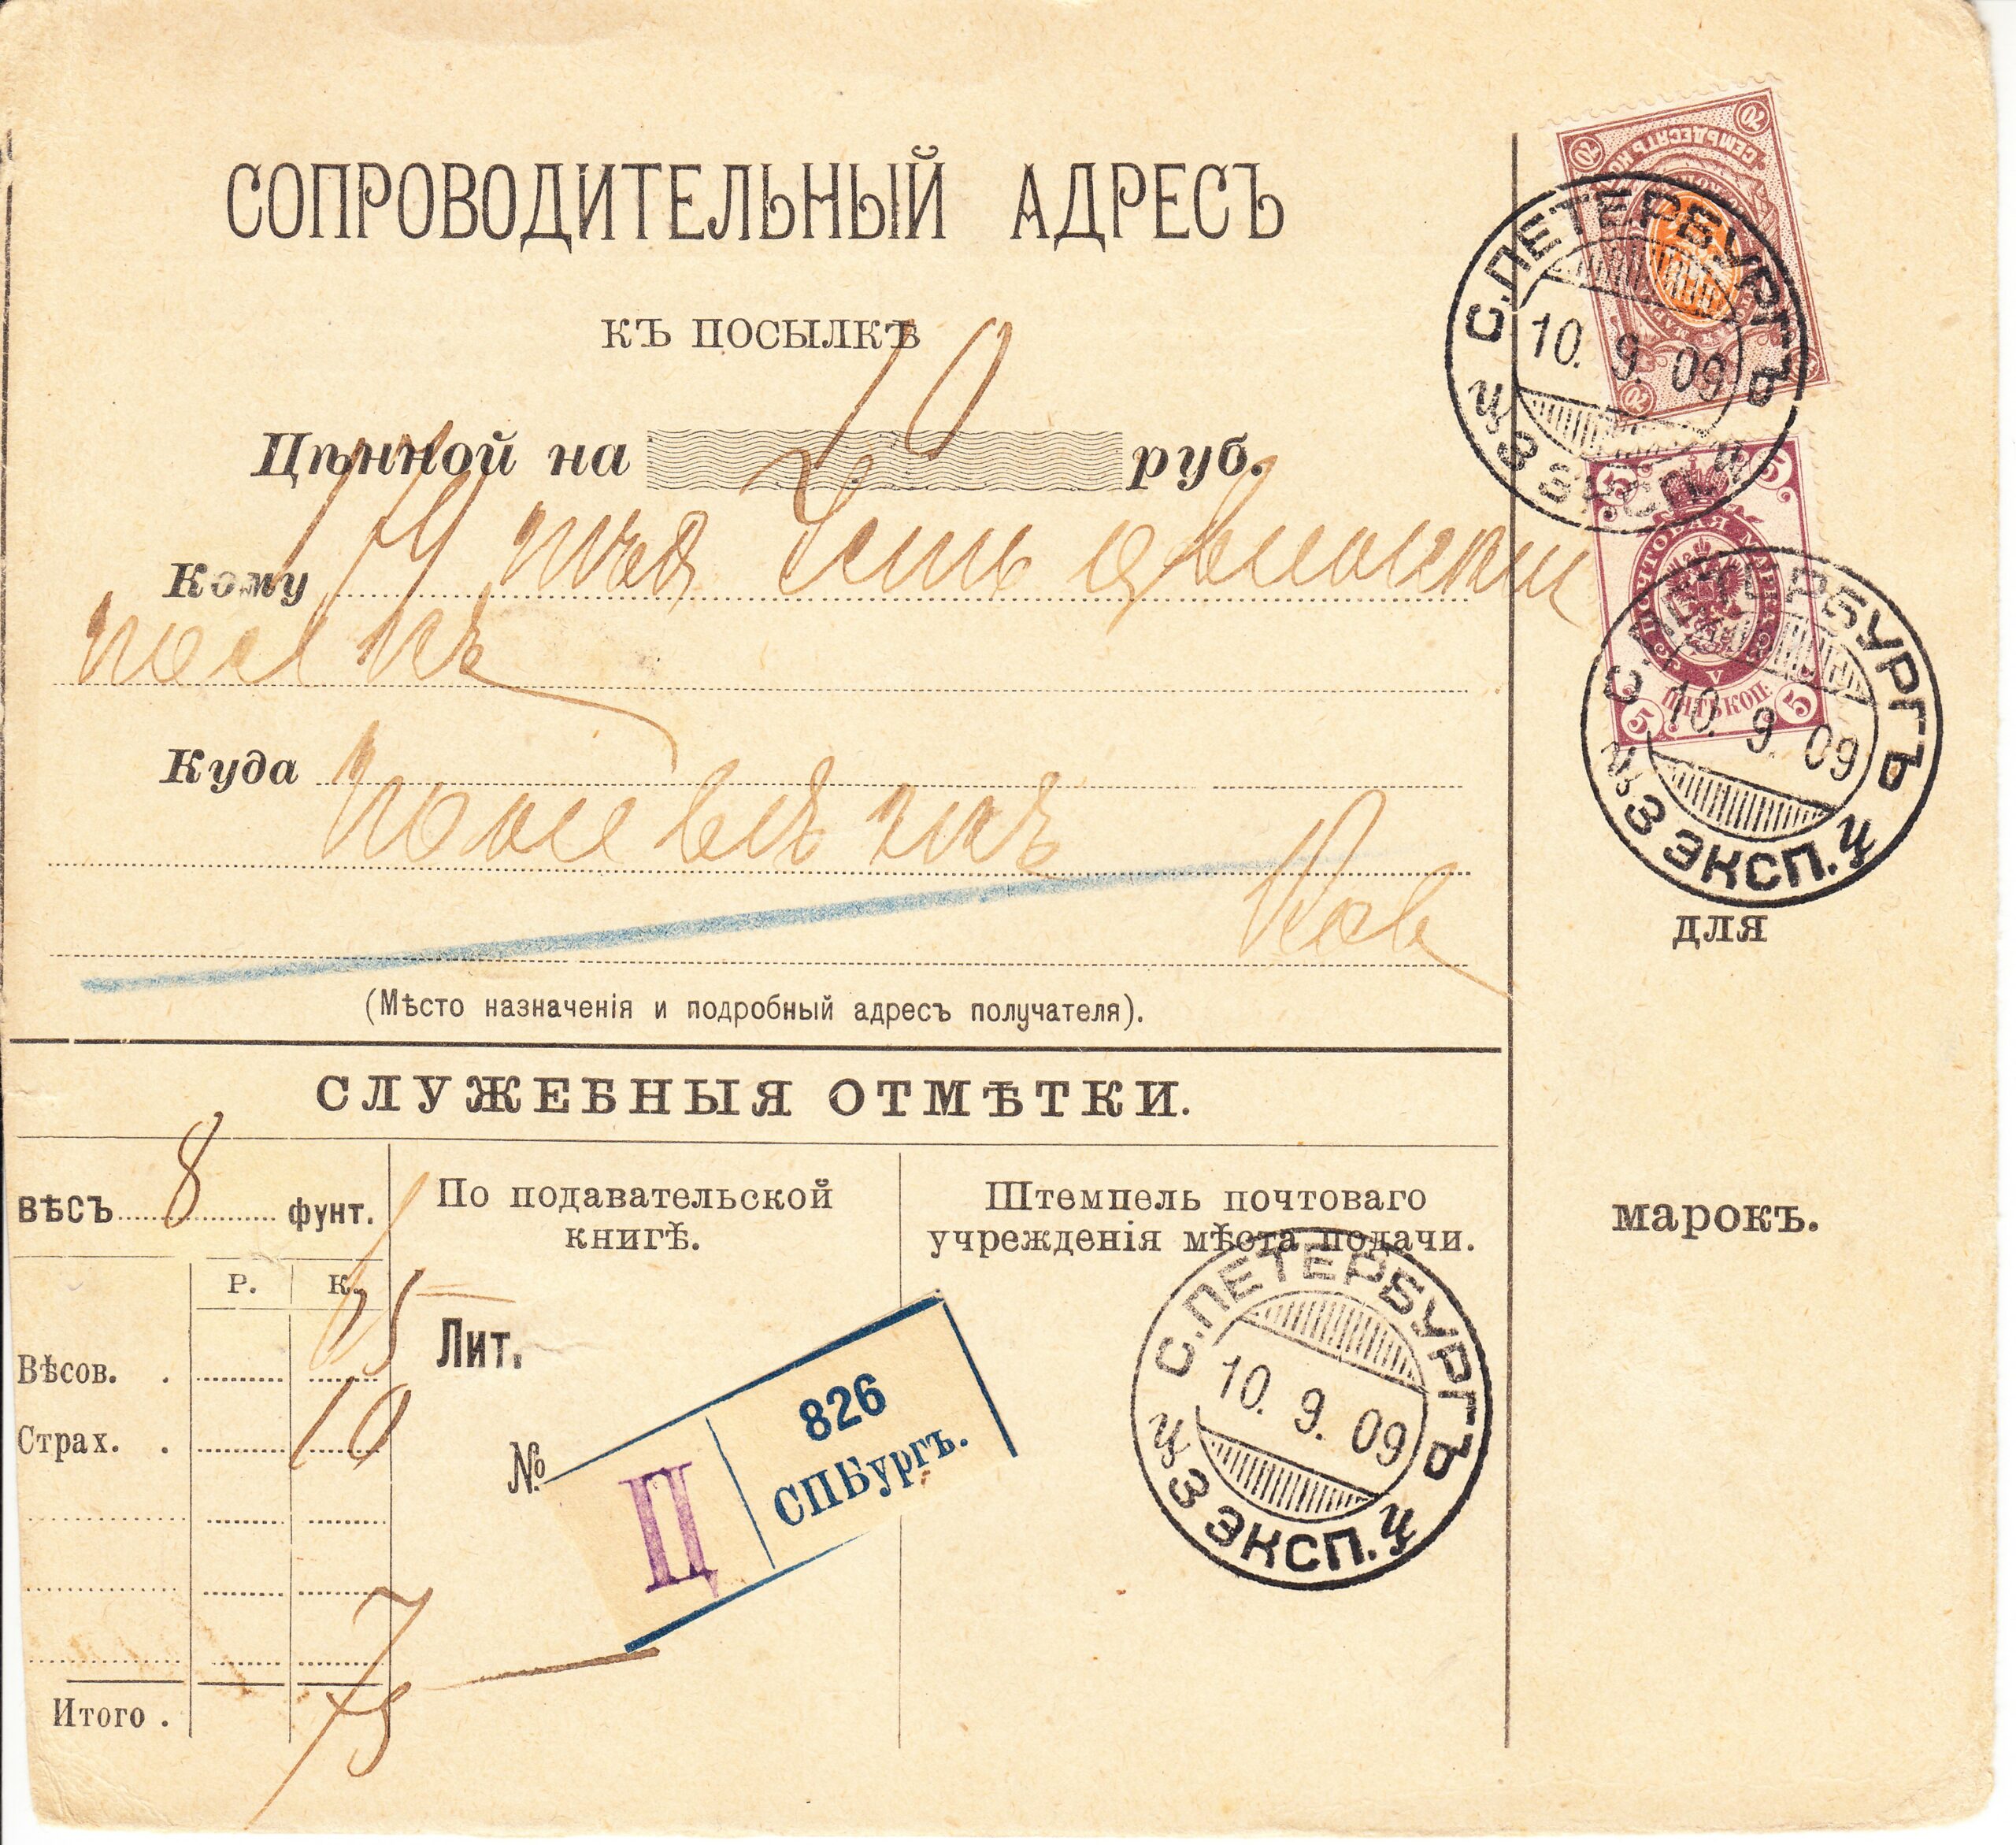 СОПРОВОДИТЕЛЬНЫЙ АДРЕСЪ
КЪ ПОСЫЛКѢ
Цѣнной на руб.
Кому 179
Куда
(Мѣсто назначенія и подробный адресъ получателя).
СЛУЖЕБНЫЯ ОТМѢТКИ.
ВѢСЪ 8 ФУНТ.
Р. К.
Вѣсов. 65
Страх. 10
Итого 75
По подавательской
книгѣ.
Лит.
№
Ц
826
СПБургъ.
Штемпель почтоваго
учрежденія мѣста подачи.
С.ПЕТЕРБУРГЪ
10. 9. 09
Ц 3 ЭКСП. Ц
70
70
70
С.ПЕТЕРБУРГЪ
10. 9. 09
Ц 3 ЭКСП. Ц
5 5
ПОЧТОВАЯ МАРКА
V
ПЯТЬ КОП.
5 5
С.ПЕТЕРБУРГЪ
10. 9. 09
Ц 3 ЭКСП. Ц
для
марокъ.